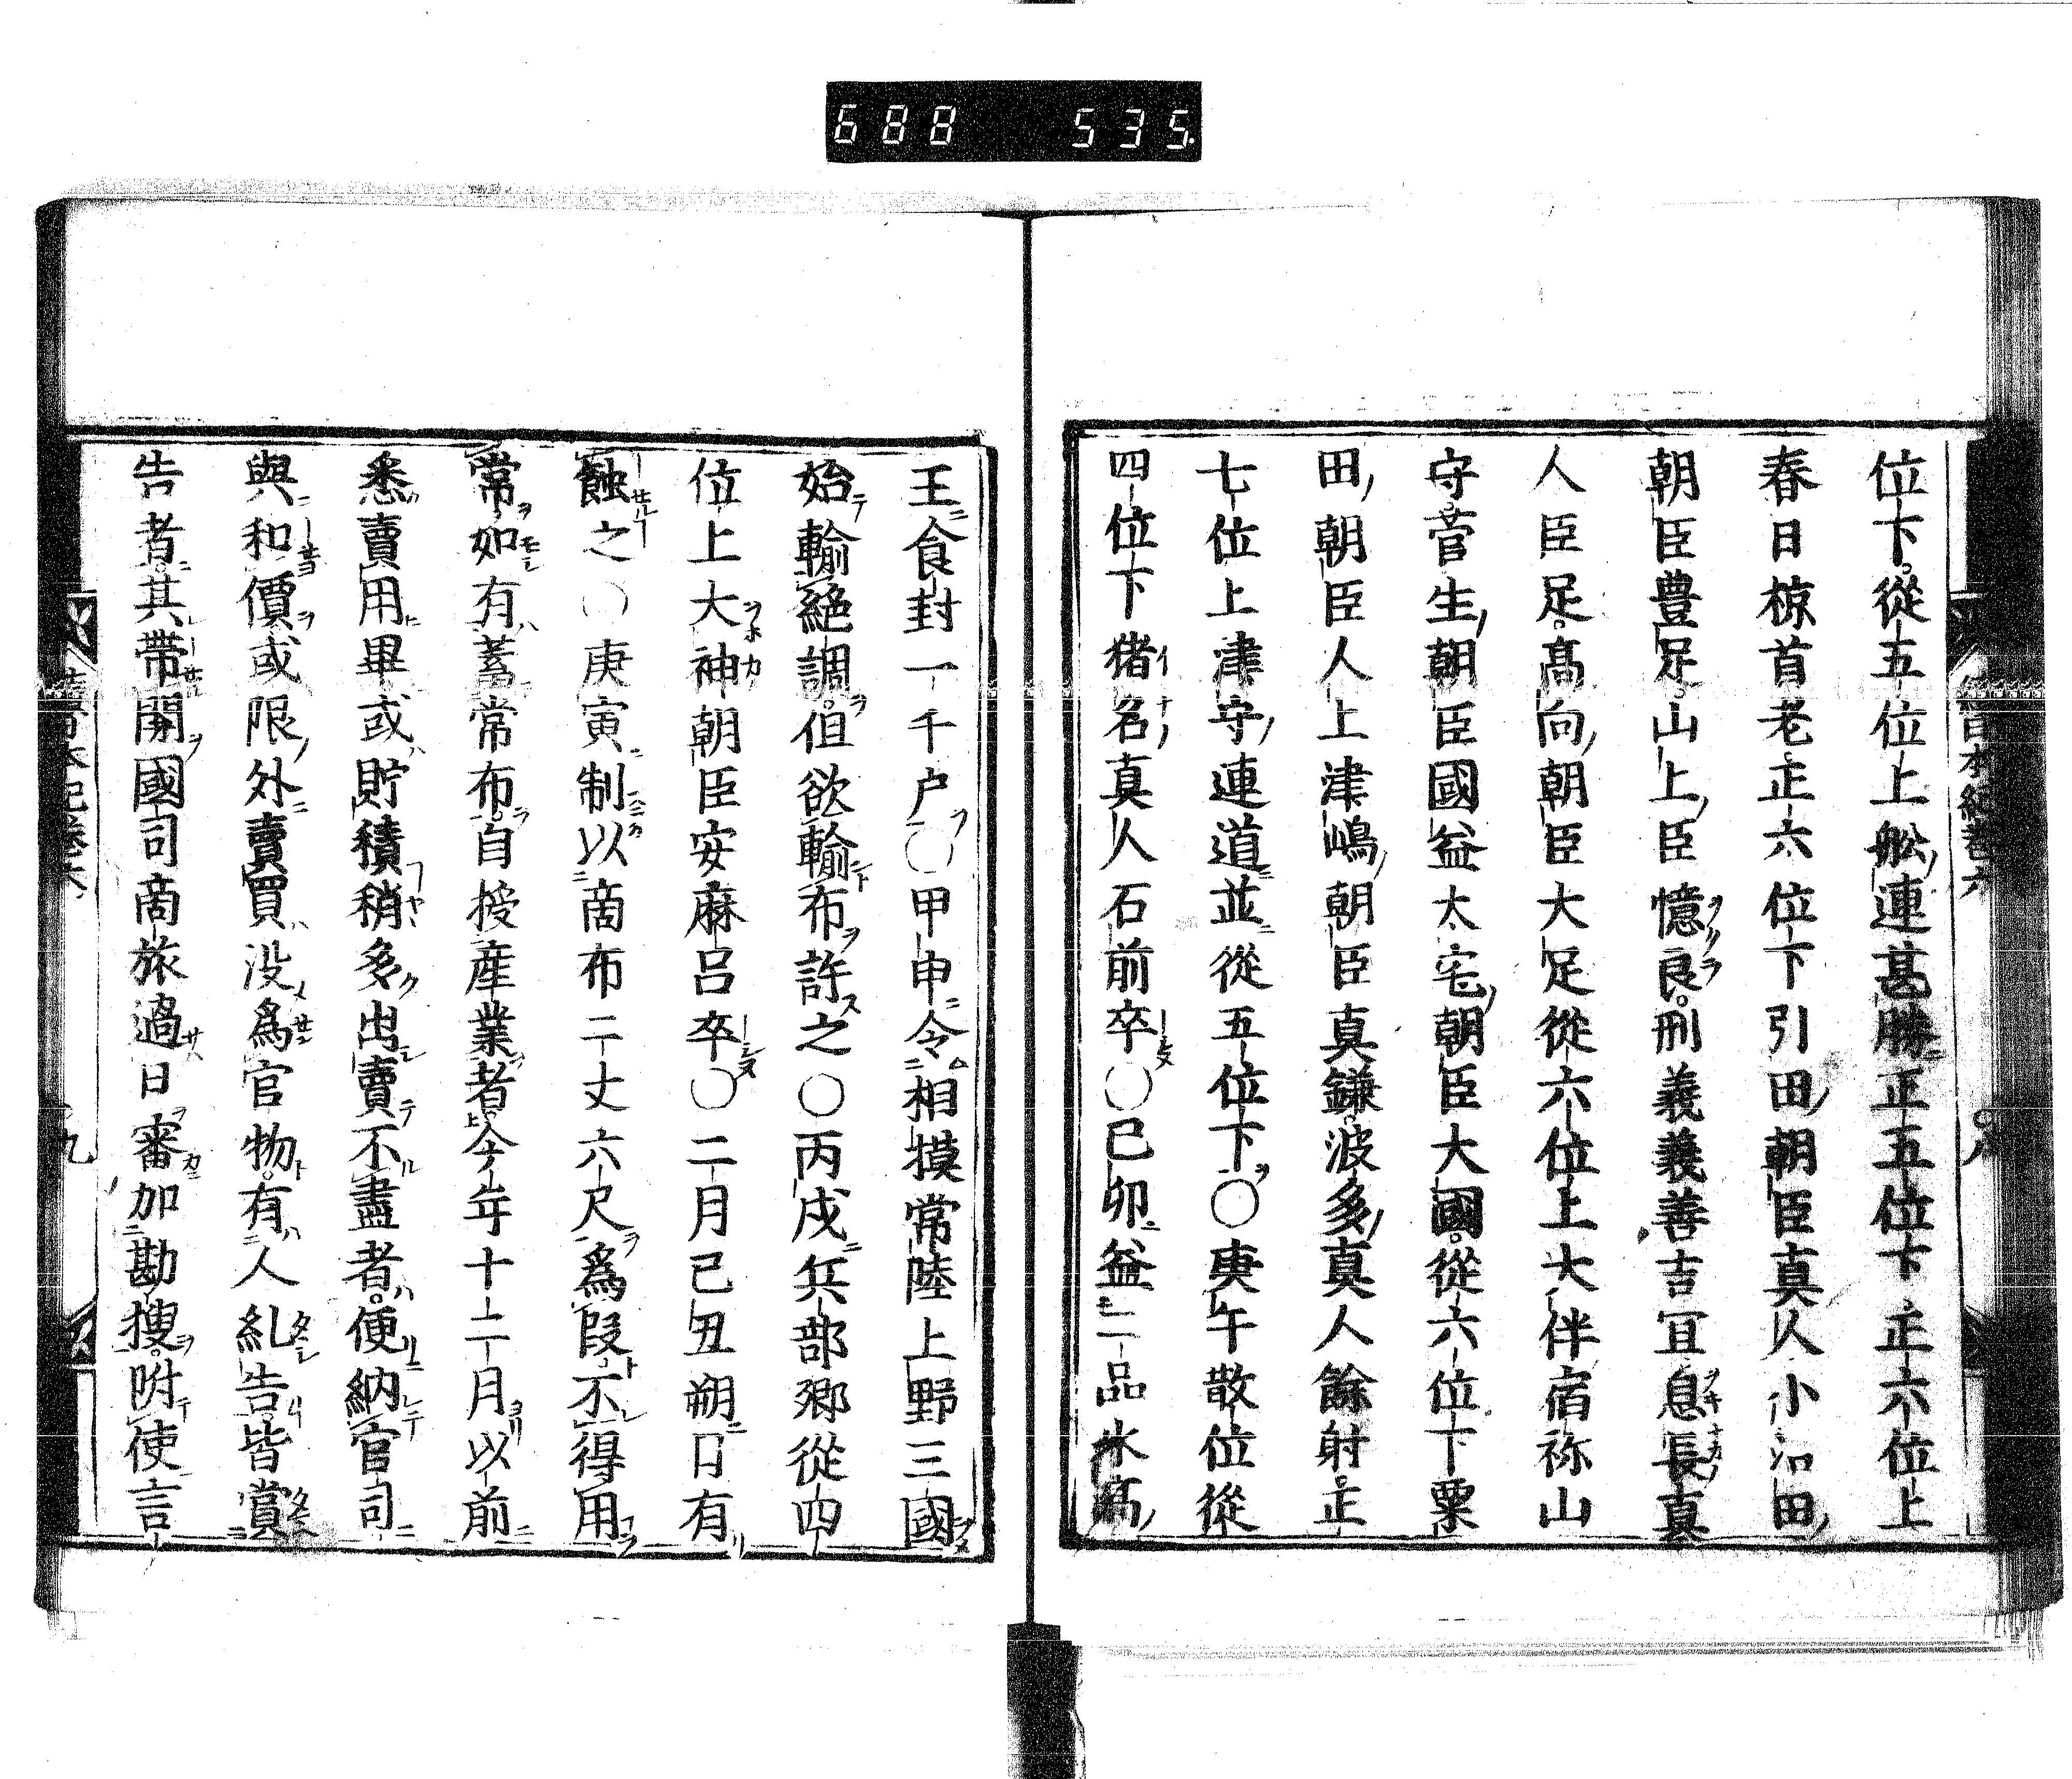 688 535
位下從五位上舩連甚勝正五位下正六位上
春日椋首老正六位下引田朝臣真人小治田
朝臣豊足山上臣憶良刑義義善吉宜息長真
人臣足髙向朝臣大足從六位上大伴宿祢山
守菅生朝臣國益太宅朝臣大國從六位下粟
田朝臣人上津嶋朝臣真鎌波多真人餘射正
七位上津守連道並從五位下〇庚午散位從
四位下猪名真人石前卒〇巳卯益二品氷髙
王食封一千戸〇甲申令相摸常陸上野三國
始輸絁調但欲輸布許之〇丙戌兵部卿從四
位上大神朝臣安麻呂卒〇二月己丑朔日有
蝕之〇庚寅制以商布二丈六尺爲段不得用
常如有蓄常布自授産業者今年十二月以前
悉賣用畢或貯積稍多出賣不盡者便納官司
與和價或限外賣買没爲官物有人糺告皆賞
告者其帶關國司商旅過日審加勘搜附使言